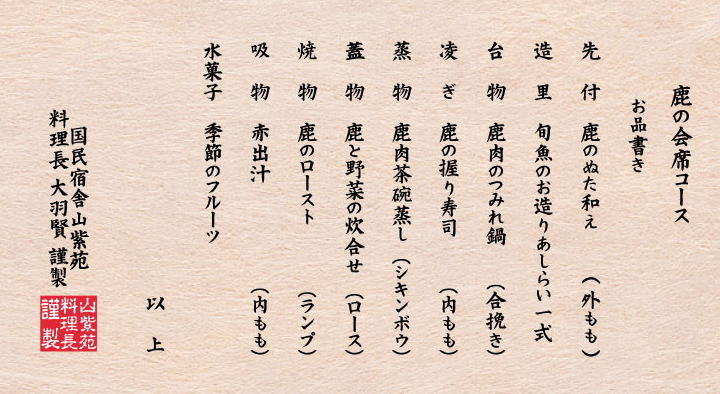 鹿の会席コース
お品書き
先付 鹿のぬた和え (外もも)
造里 旬魚のお造りあしらい一式
台物 鹿肉のつみれ鍋 (合挽き)
凌ぎ 鹿の握り寿司 (内もも)
蒸物 鹿肉茶碗蒸し (シキンボウ)
蓋物 鹿と野菜の炊合せ (ロース)
焼物 鹿のロースト (ランプ)
吸物 赤出汁 (内もも)
水菓子 季節のフルーツ
以上
国民宿舎山紫苑
料理長 大羽賢 謹製
山紫苑
料理長
謹製